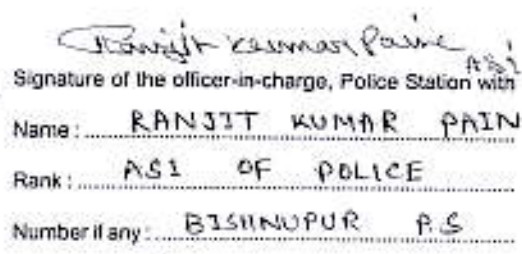 Ranjit Kumar Pain
ASI
Signature of the officer-in-charge, Police Station with
Name : RANJIT KUMAR PAIN
Rank : ASI OF POLICE
Number if any : BISHNUPUR P.S